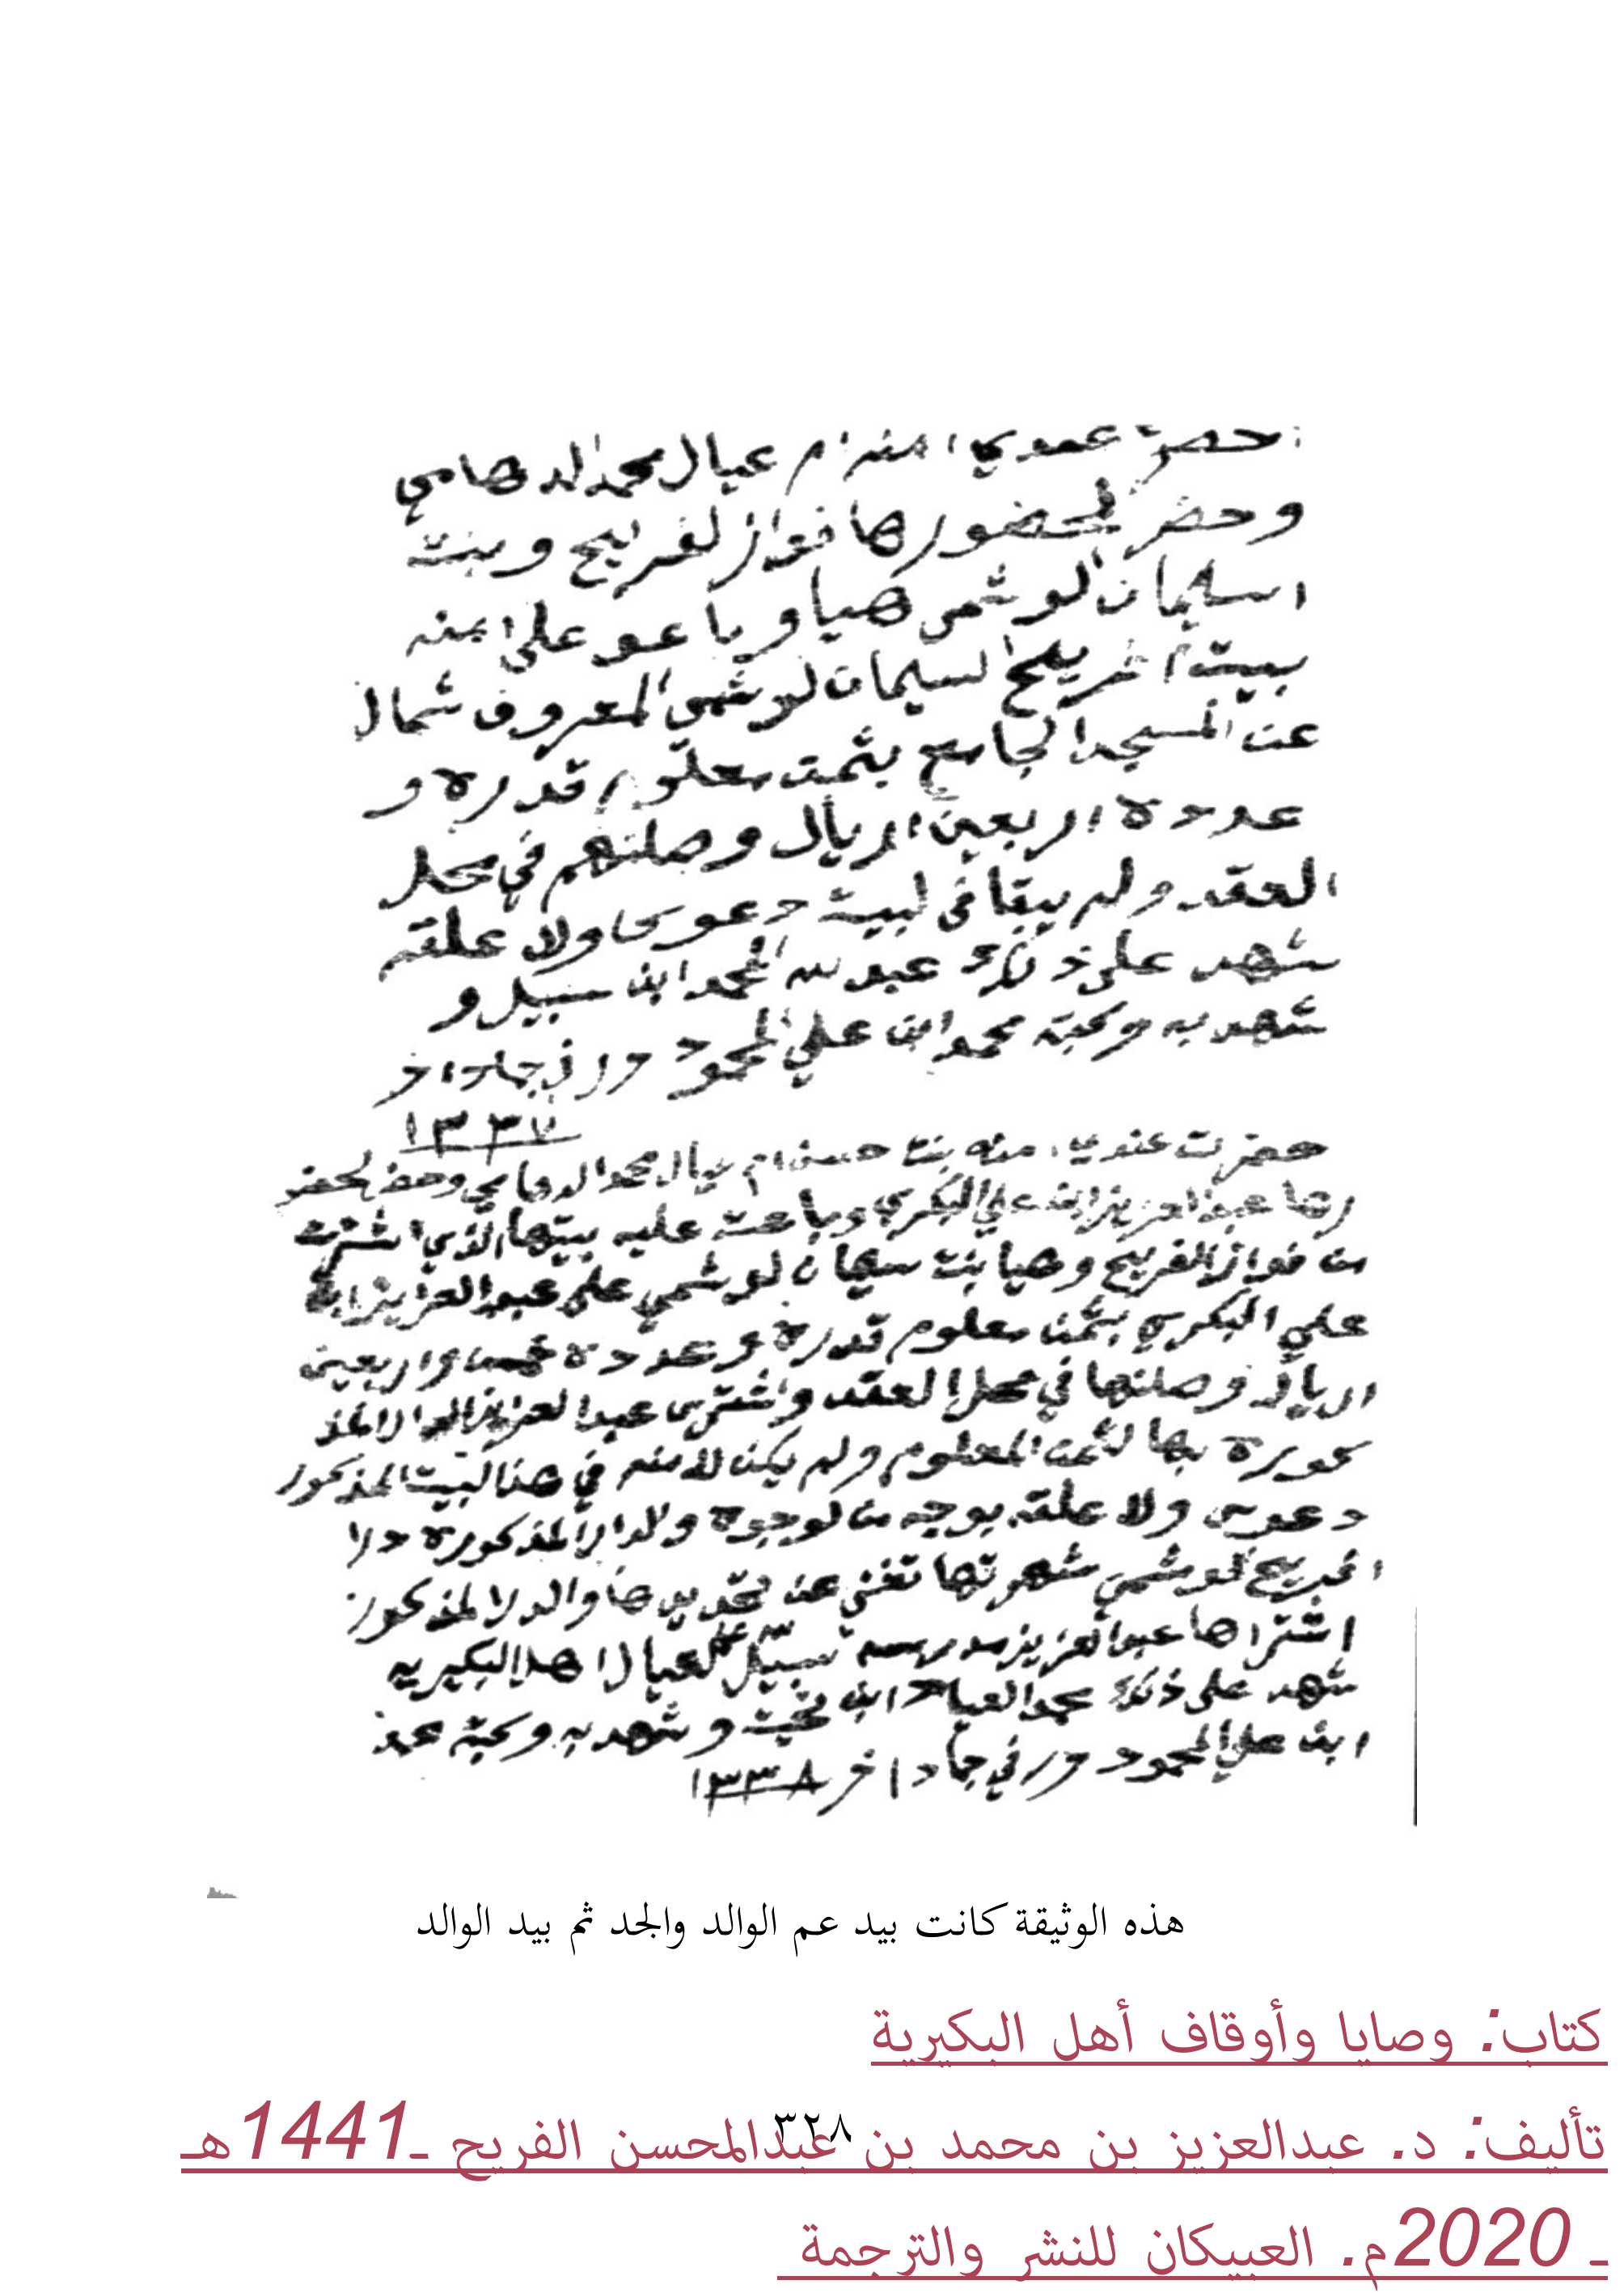 حضرت عندي امنه ام عيال محمد الدهامي
وحضر لحضورها فواز لفريح وبنت
اسليمان الوشمي هيا وباعو على امنه
بيت افريح السليمان لوشمي المعروف شمال
عن المسجد الجامع بثمن معلوم قدره و
عدده اربعين اريال وصلتهم في محل
العقد ولم يبقا في لبيت دعوى ولا علقه
شهد على ذلك عبد لله المحمد ابن سبيل و
شهد به وكتبه محمد ابن علي المحمود حرر في جماد اخر
١٣٣٧
حضرت عندي امنه بنت حسن ام عيال محمد الدهامي وحضر لحضو
رها عبد العزيز ابن علي البكري وباعت عليه بيتها الذي اشترت
من فواز الفريح وهيا بنت سليمان لوشمي على عبد العزيز ابن
علي البكري بثمن معلوم قدره وعدده خمس واربعين
اريال وصلتها في محل العقد واشترى عبد العزيز الدار المذ
كوره بها لثمن المعلوم ولم يكن لامنه في هذا لبيت المذكور
دعوى ولا علقه بوجه من لوجوه والدار المذكوره دار
افريح لوشمي شهرتها تغني عن تحديدها والدار لمذكور
اشتراها عبد العزيز سبيل لعيال اهل البكيريه
شهد على ذلك محمد العباد ابن تخيت وشهد به وكتبه محمد
ابن علي المحمود حرر في جماد اخر ١٣٣٨
هذه الوثيقة كانت بيد عم الوالد والجد ثم بيد الوالد
كتاب: وصايا وأوقاف أهل البكيرية
٣٢٨
تأليف: د. عبدالعزيز بن محمد بن عبدالمحسن الفريح ـ1441هـ
ـ 2020م. العبيكان للنشر والترجمة